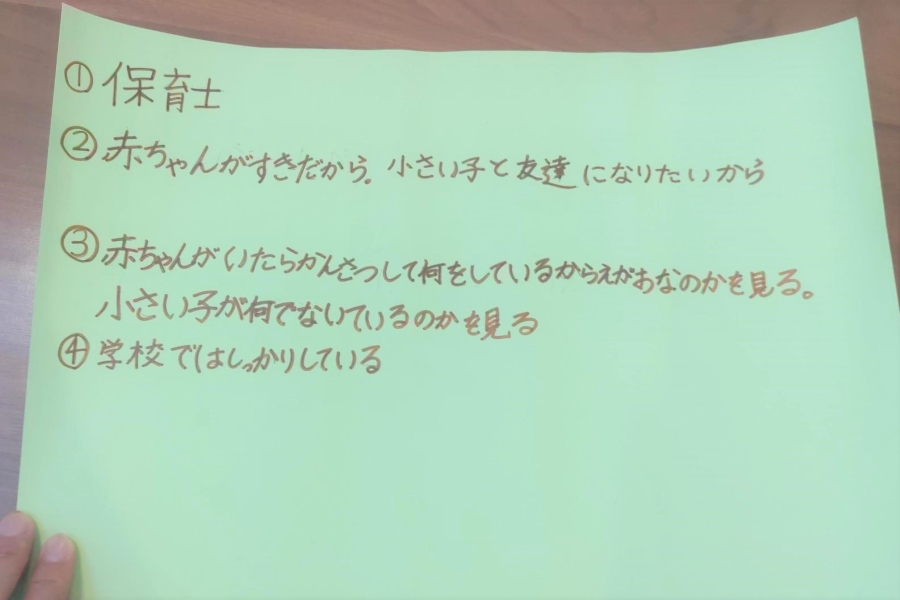 ①保育士
②赤ちゃんがすきだから。小さい子と友達になりたいから
③赤ちゃんがいたらかんさつして何をしているからえがおなのかを見る。
小さい子が何でないているのかを見る
④学校ではしっかりしている